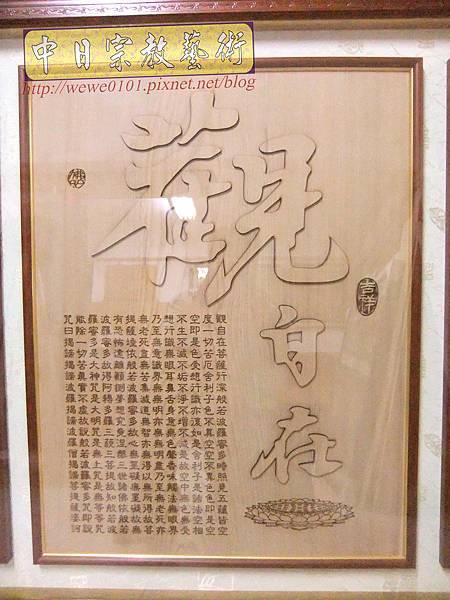 中日宗教藝術
http://wewe0101.pixnet.net/blog
觀自在
吉祥
觀自在菩薩行深般若波羅蜜多時照見五蘊皆空
度一切苦厄舍利子色不異空空不異色色即是空
空即是色受想行識亦復如是舍利子是諸法空相
不生不滅不垢不淨不增不減是故空中無色無受
想行識無眼耳鼻舌身意無色聲香味觸法無眼界
乃至無意識界無無明亦無無明盡乃至無老死亦
無老死盡無苦集滅道無智亦無得以無所得故菩
提薩埵依般若波羅蜜多故心無罣礙無罣礙故無
有恐怖遠離顛倒夢想究竟涅槃三世諸佛依般若
波羅蜜多故得阿耨多羅三藐三菩提故知般若波
羅蜜多是大神咒是大明咒是無上咒是無等等咒
能除一切苦真實不虛故說般若波羅蜜多咒即說
咒曰揭諦揭諦波羅揭諦波羅僧揭諦菩提薩婆訶